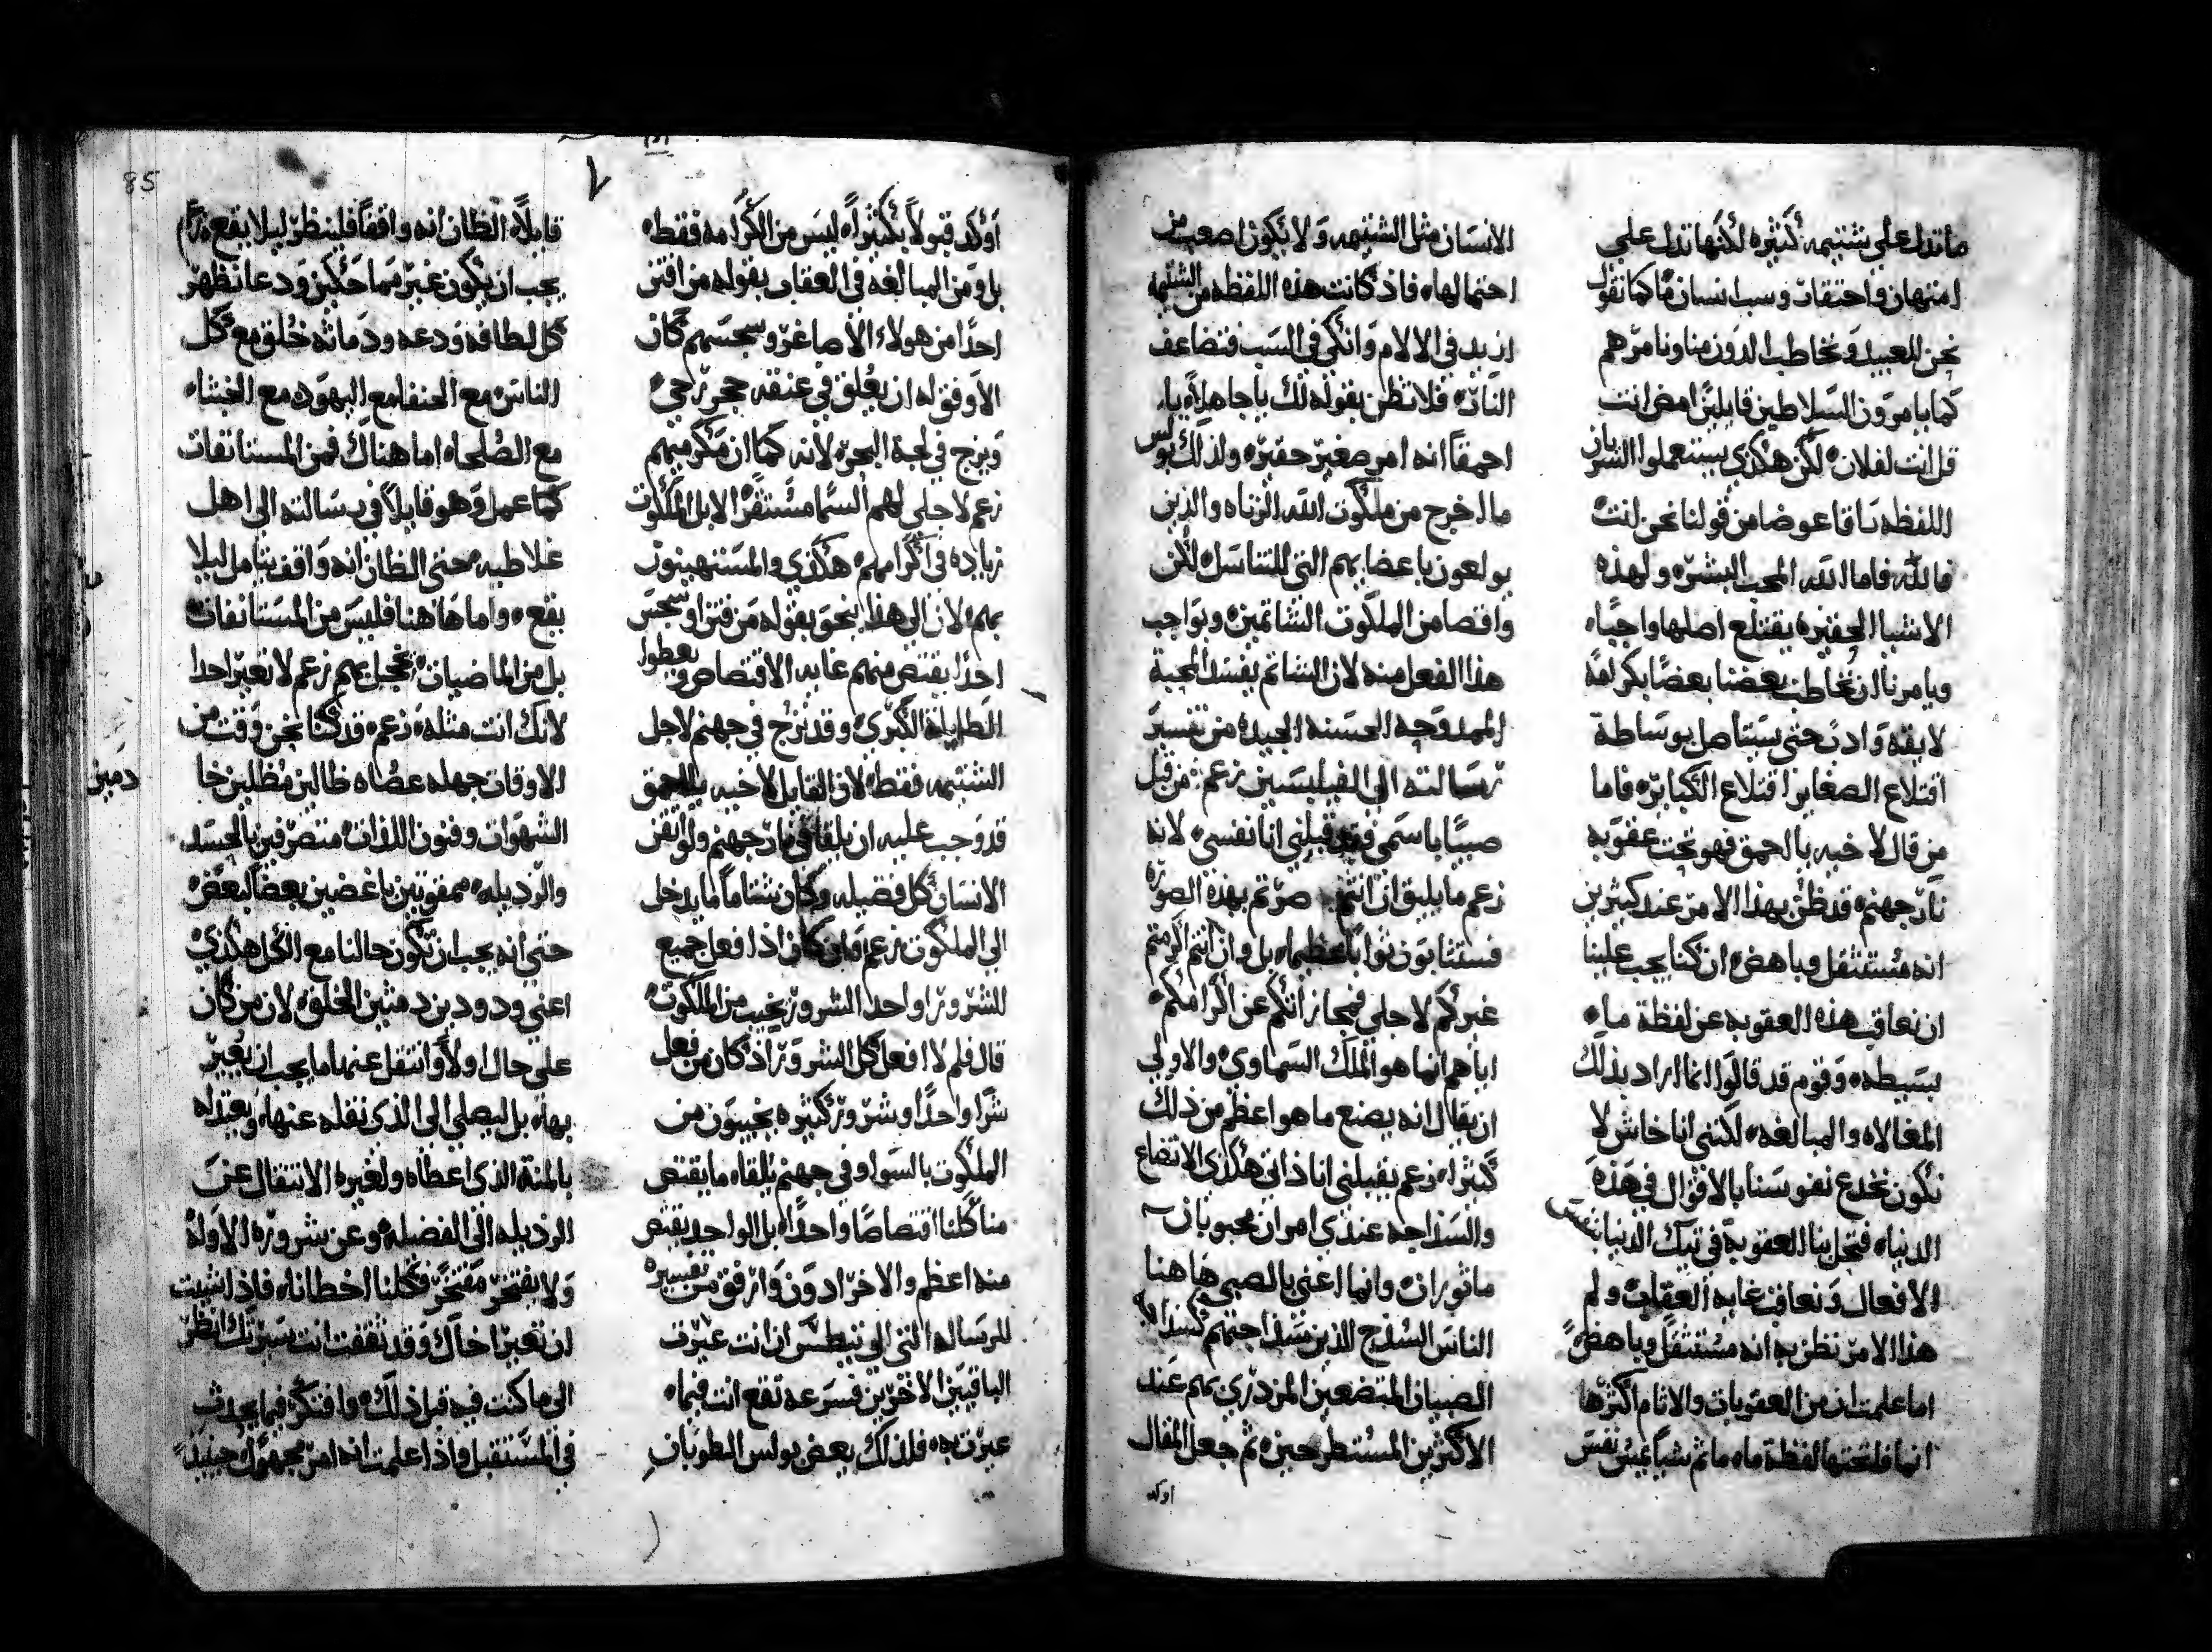 ماتدل علي شتيمه كثيره لكنها تدل علي
امتهان واحتقار وسب انسان ما كما نقول
نحن للعبيد ونخاطب الدون منا ونامرهم
كما يامرون السلاطين قايلين امض انت
قل انت لفلان لكن هكذي يستعملوا السريان
اللفظه راقا عوضا من قولنا نحن انت
فالله فاما الله المحب البشر ولهذه
الاشيا الحقيره يقتلع اصلها واجبا
ويامرنا ان نخاطب بعضنا بعضا بكرامه
لايقه وادب حتى يستاصل بوساطة
اقتلاع الصغاير اقتلاع الكباير فاما
من قال لاخيه يا احمق فهو تحت عقوبه
نار جهنم قد ظن بهذا الامر عند كثيرين
انه مستثقل وباهض ان كنا يجب علينا
ان نعاقب هذه العقوبه عن لفظة ما
بسيطه وقوم قد قالوا انما اراد بذلك
المغالاه والمبالغه لكنني انا خاش لا
نكون نخدع نفوسنا بالاقوال في هذه
الدنيا فتحل بنا العقوبة في تيك الدنيا بنفس
الافعال ونعاقب غايه العقاب ولم
هذا الامر نظن به انه مستثقل وباهض
اما علمت ان من العقوبات والاثام اكثرها
انما فاتحتها لفظة ما ما ثم شيا يمس نفس
الانسان مثل الشتيمه ولا يكون اصعب من
احتمالها فاذ كانت هذه اللفظه من الشتيمه
ازيد في الالام وانكي في السب فتضاعف
النار فلا تظن بقوله لك يا جاهلا يا
احمقا انه امر صغير حقير ولذلك بولس
ما اخرج من ملكوت الله الزناه والذين
يولعون باعضايهم التي للتناسل لكن
واقصا من الملكوت الشاتمين وبواجب
هذا الفعل منه لان الشاتم يفسد المحبة
الممدوحه الحسنه الجيده من تفسير
رسالته الى الفيليبسيين زعم من قبل
صبيا باسمي فقد قبلني انا نفسي لانه
زعم ما يليق ان انتم صرتم بهذه الصوره
فستثابون ثوابا عظيما بل وان انتم اكرمتم
غيركم لاجلي فمجازاتكم عن اكرامكم
اياهم انما هو الملك السماوي والاولي
ان يقال انه يصنع ما هو اعظم من ذلك
كثيرا زعم يقبلني انا ذاتي هكذي الاتضاع
والسذاجه عندي امران محبوبان
ماثوران وانما اعني بالصبي هاهنا
الناس السذج الذين سذاجتهم كسذاجة
الصبيان المتضعين المزدري بهم عند
الاكثرين المستطرحين ثم جعل المقال
اوكد
اوكد قبولا بكثيرا ليس من الكرامه فقط
بل ومن المبالغه في العقاب بقوله من افتن
احدا من هولاء الاصاغر وسجسهم كان
الاوفق له ان يعلق في عنقه حجر رحي
ويزج في لجة البحر لانه كما ان مكرميهم
زعم لاجلي لهم السما مستقرا لا بل الملكوت
زياده في اكرامهم هكذي والمستهينون
بهم لان الى هذا ينحو بقوله من فتن او سجس
احدا يقتص منهم غايه الاقتصاص ويعطوا
الطايله الكبرى وقد نزج في جهنم لاجل
الشتيمه فقط لان القايل لاخيه يا احمق
قد وجب عليه ان يلقا في نار جهنم ولو اتقن
الانسان كل فضيله وكان شتاما ما يدخل
الى الملكوت زعم فان كان اذا فعل جميع
الشرور او واحد الشرور نخيب من الملكوت
قال فلم لا افعل كل الشرور اذ كان من فعل
شرا واحدا وشرور كثيره يخيبون من
الملكوت بالسوا وفي جهنم يلقا ما يقتص
منا كلنا اقتصاصا واحدا بل الواحد يقتص
منه اعظم والاخر ادون وارفق من تفسيره
للرسالة التي الى تيطس ان انت عيرت
الباقيين الاخرين فسرعه تقع انت فيما
عيرت به فلذلك يعض بولس الطوبان
قايلا الظان انه واقفا فلينظر ليلا يقع زعم
يجب ان يكون غير مماحكين ودعا نظهر
كل لطافه ودعه ودماثه خلق مع كل
الناس مع الحنفا مع اليهود مع الخبثاء
مع الصلحا اما هناك فمن المستانفات
كما عمل وهو قايلا في رسالته الى اهل
غلاطيه حتى الظان انه واقف يتامل ليلا
يقع واما هاهنا فليس من المستانفات
بل من الماضيات يخجل بهم زعم لا تعير احدا
لانك انت مثله زعم قد كنا نحن وقت من
الاوقات جهله عصاه ظالين مظلين خا
دمين
الشهوات وفنون اللذات متصرفين بالحسد
والرذيله ممقوتين باغضين بعضا لبعض
حتى انه يجب ان تكون حالنا مع الكل هكذي
اعني ودودين دمثين الخلق لان من كان
على حال اولا وانتقل عنها ما يجب ان يعير
بها بل ليصلي الى الذي نقله عنها ويعتد له
بالمنة الذي اعطاه ولغيره الانتقال عن
الرذيله الى الفضيله وعن شروره الاوله
ولا يفتخر مفتخر فكلنا اخطانا فاذا شيت
ان تعير اخاك وقد تثقفت انت سيرتك انظر
الى ما كنت فيه قبل ذلك وافتكر فيما يحدث
في المستقبل واذا علمت انه امر مجهول حينيذ
85